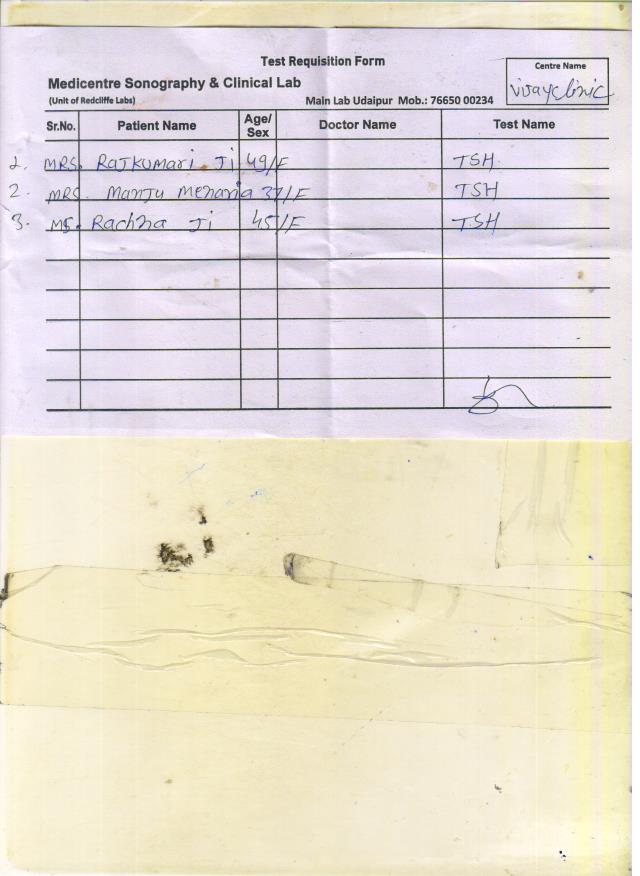 Test Requisition Form
Centre Name
Medicentre Sonography & Clinical Lab
vijay clinic
(Unit of Redcliffe Labs) Main Lab Udaipur Mob.: 76650 00234
Sr.No. Patient Name Age/Sex Doctor Name Test Name
1. MRS. Rajkumari Ji 49/F TSH
2. MRS. Manju Menaria 37/F TSH
3. MS. Rachna Ji 45/F TSH